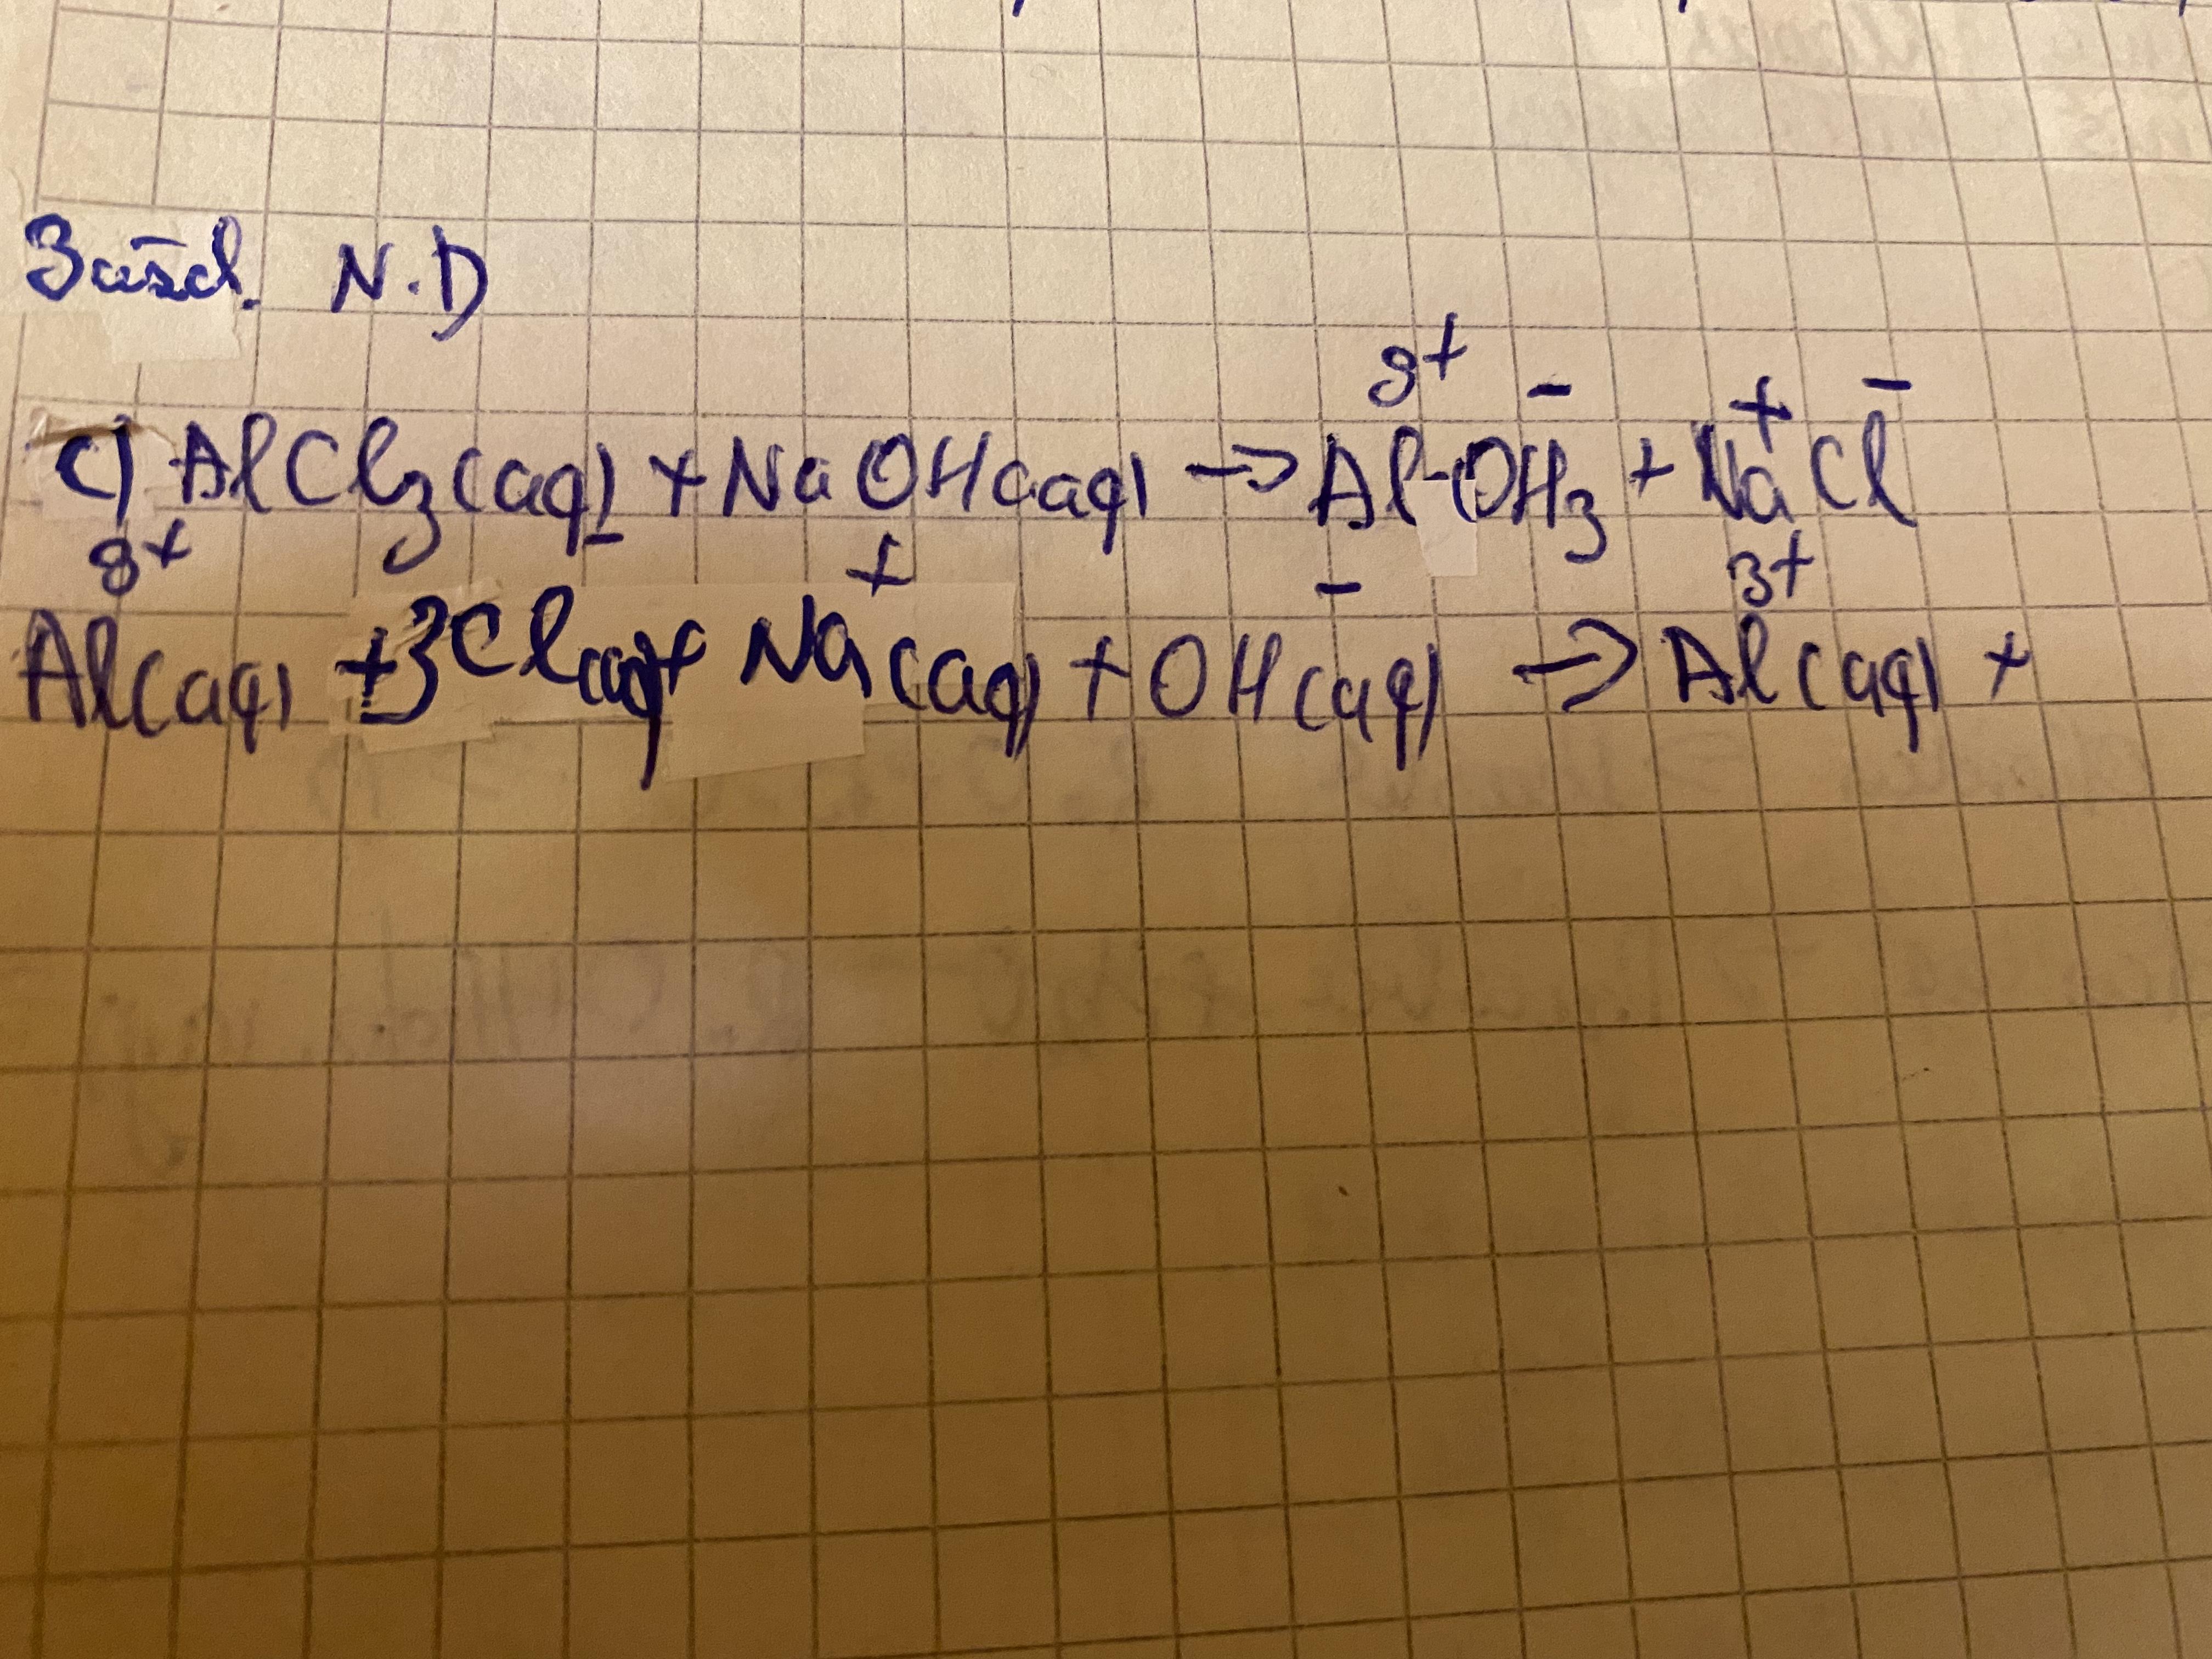 N.D
3+ - + -
c) AlCl3(aq) + NaOH(aq) -> Al-OH3 + NaCl
3+ - + - 3+
Al(aq) + 3Cl(aq) + Na(aq) + OH(aq) -> Al(aq) +